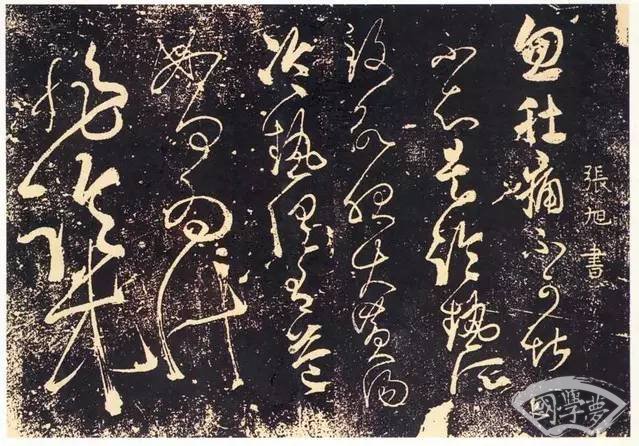 張旭書
忽肚痛不可堪
不知是冷熱所
致欲服大黃湯
冷熱俱有益
如何為計
非臨床
國學夢